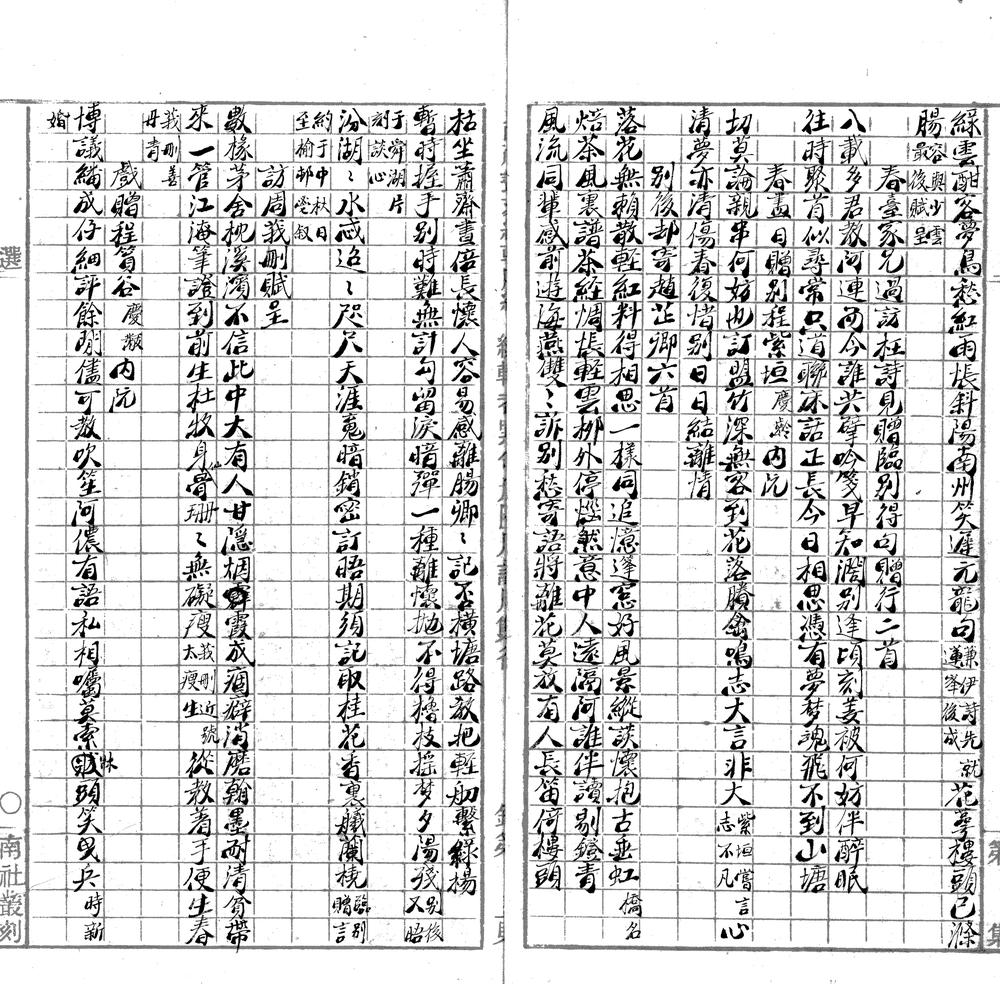 綠雲酣容夢鳥愁紅雨悵斜陽南州笑遲元龍句蒹伊詩先就蓮峯後成花萼樓頭已滌
腸容與少雲最後賦呈
春臺家兄過訪枉詩見贈臨別得句贈行二首
八載多君教阿連而今誰共擘吟箋早知濶別逢頃刻姜被何妨伴醉眠
往時聚首似尋常只道聯床話正長今日相思憑有夢夢魂飛不到山塘
春盡日贈別程紫垣慶齡內沅
切莫論親串何妨也訂盟竹深無客到花落賸禽鳴志大言非大紫垣嘗言志不凡心
清夢亦清傷春復惜別日日結離情
別後却寄趙芷卿六首
落花無賴散輕紅料得相思一樣同追憶蓬窓好風景縱談懷抱古垂虹橋名
焙茶風裏譜茶經惆悵輕雲柳外停惱煞意中人遠隔阿誰伴讀剔鐙青
風流同輩感前遊海燕雙〻訴別愁寄語將離花莫放有人長笛倚樓頭
枯坐蕭齋晝倍長懷人容易感離腸卿〻記否橫塘路教把輕舠繫綠楊
暫時握手別時難無計勾留淚暗彈一種離懷抛不得櫓枝搖夢夕陽殘別後又晤
于舜湖片刻談心
汾湖〻水感迢〻咫尺天涯黯暗銷密訂晤期須記取桂花香裏艤蘭橈臨別贈言
約于中秋日至榆邨噬叙
訪周莪刪賦呈
數椽茅舍枕溪濱不信此中大有人甘隱栖霞成痼癖消磨翰墨耐清貧帶
來一管江海筆證到前生杜牧身仙骨珊〻無礙瘦莪刪近號太瘦生從教着手便生春
莪刪善丹青
戲贈程篔谷慶𪹚內沅
博議編成仔細評餘閒儘可教吹笙阿儂有語私相囑莫索牀頭笑曳兵時新
婚
選
〇
南社叢刻
第
集